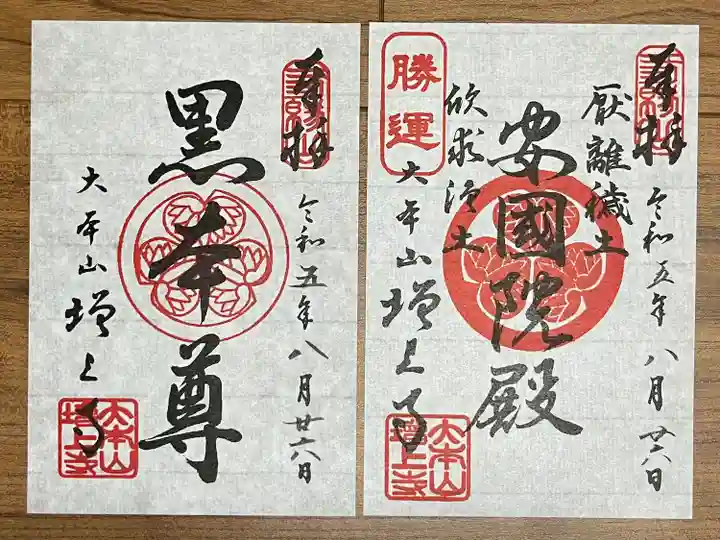 奉拝
令和五年八月廿六日
黒本尊
大本山増上寺
大本山
増上寺
奉拝
令和五年八月廿六日
厭離穢土
安國院殿
欣求浄土
勝運
大本山増上寺
大本山
増上寺